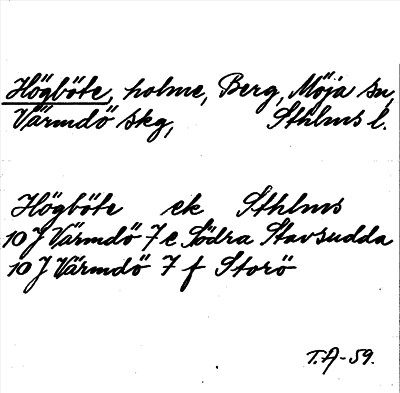 Högböte, holme, Berg, Möja sn,
Värmdö skg, Sthlms l.
Högböte ek Sthlms
10 J Värmdö 7 e Södra Stavsudda
10 J Värmdö 7 f Storö
T.A-59.